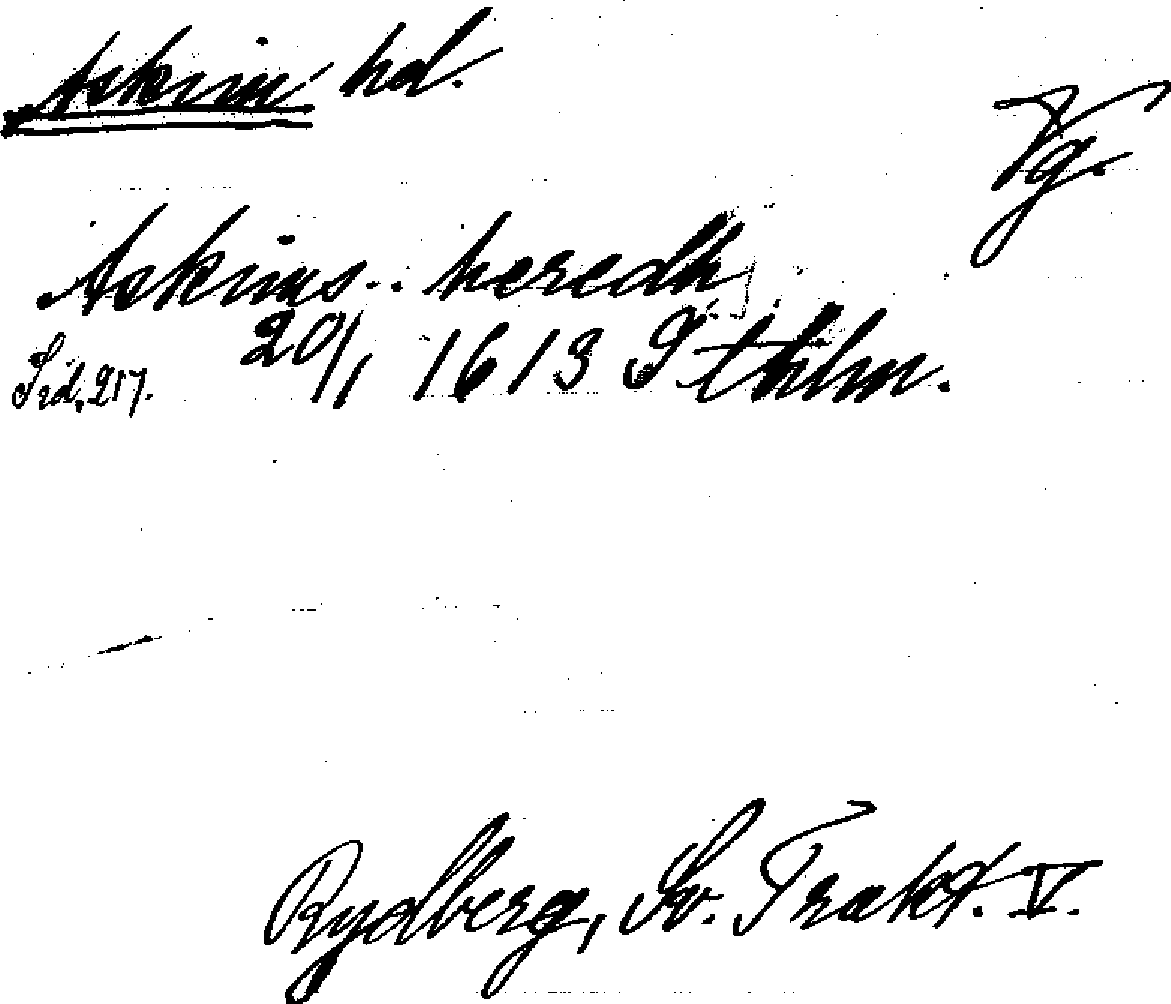 Askim hd.
Vg.
Askims.. heredh
Sid. 217. 20/1 1613 Sthlm.
Rydberg, Sv. Trakt. V.